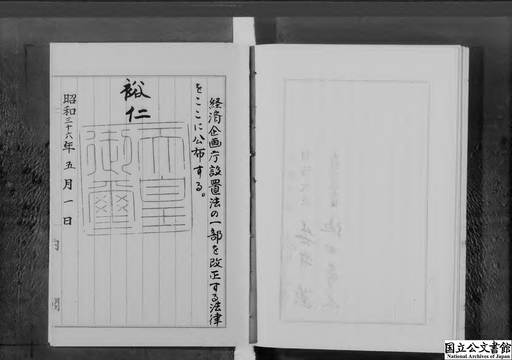 経済企画庁設置法の一部を改正する法律
をここに公布する。
裕仁
天皇
御璽
昭和三十六年五月一日
内
閣
国立公文書館
National Archives of Japan